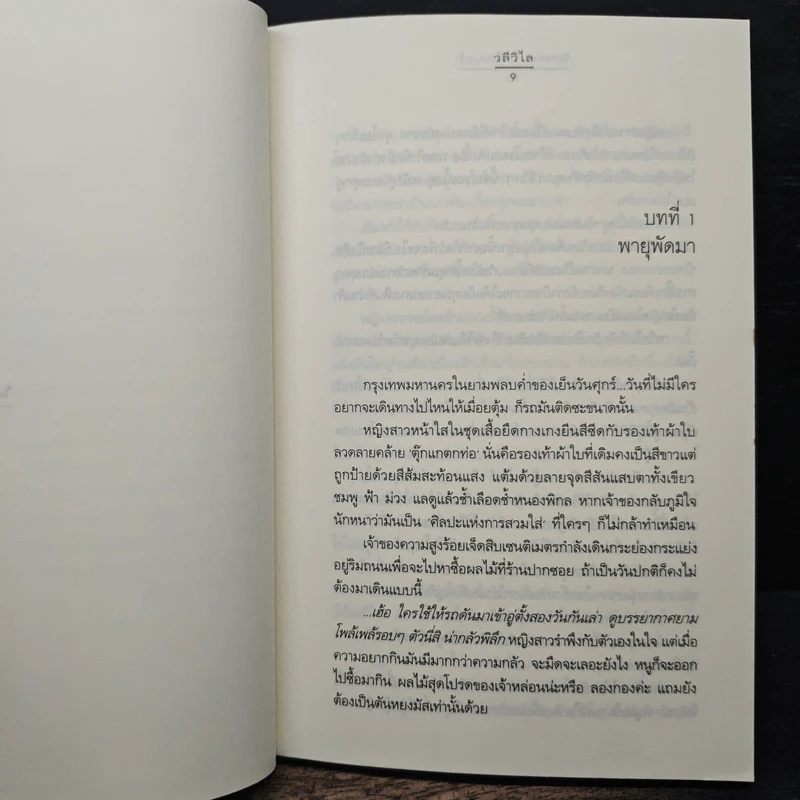 วลีวิไล
9
บทที่ 1
พายุพัดมา
กรุงเทพมหานครในยามพลบค่ำของเย็นวันศุกร์...วันที่ไม่มีใคร
อยากจะเดินทางไปไหนให้เมื่อยตุ้ม ก็รถมันติดซะขนาดนั้น
หญิงสาวหน้าใสในชุดเสื้อยืดกางเกงยีนสีซีดกับรองเท้าผ้าใบ
ลวดลายคล้าย 'ตุ๊กแกตกท่อ' นั่นคือรองเท้าผ้าใบที่เดิมคงเป็นสีขาวแต่
ถูกป้ายด้วยสีส้มสะท้อนแสง แต้มด้วยลายจุดสีสันแสบตาทั้งเขียว
ชมพู ฟ้า ม่วง แลดูแล้วช้ำเลือดช้ำหนองพิกล หากเจ้าของกลับภูมิใจ
นักหนาว่ามันเป็น 'ศิลปะแห่งการสวมใส่' ที่ใครๆ ก็ไม่กล้าทำเหมือน
เจ้าของความสูงร้อยเจ็ดสิบเซนติเมตรกำลังเดินกระย่องกระแย่ง
อยู่ริมถนนเพื่อจะไปหาซื้อผลไม้ที่ร้านปากซอย ถ้าเป็นวันปกติก็คงไม่
ต้องมาเดินแบบนี้
...เฮ้อ ใครใช้ให้รถดันมาเข้าอู่ตั้งสองวันกันเล่า ดูบรรยากาศยาม
โพล้เพล้รอบๆ ตัวนี่สิ น่ากลัวพิลึก หญิงสาวรำพึงกับตัวเองในใจ แต่เมื่อ
ความอยากกินมันมีมากกว่าความกลัว จะมืดจะเลอะยังไง หนูก็จะออก
ไปซื้อมากิน ผลไม้สุดโปรดของเจ้าหล่อนน่ะหรือ ลองกองค่ะ แถมยัง
ต้องเป็นตันหยงมัสเท่านั้นด้วย